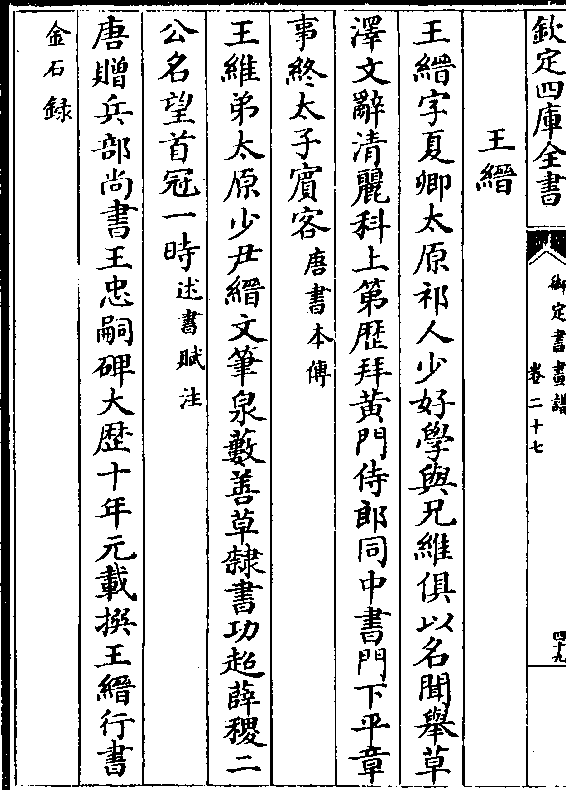 欽定四庫全書
御定書畫譜
卷二十七
四十九
王縉
王縉字夏卿太原祁人少好學與兄維俱以名聞舉草
澤文辭清麗科上第歴拜黄門侍郎同中書門下平章
事終太子賓客唐書本傳
王維弟太原少尹縉文筆泉藪善草隸書功超薛稷二
公名望首冠一時述書賦注
唐贈兵部尚書王忠嗣碑大歴十年元載撰王縉行書
金石録